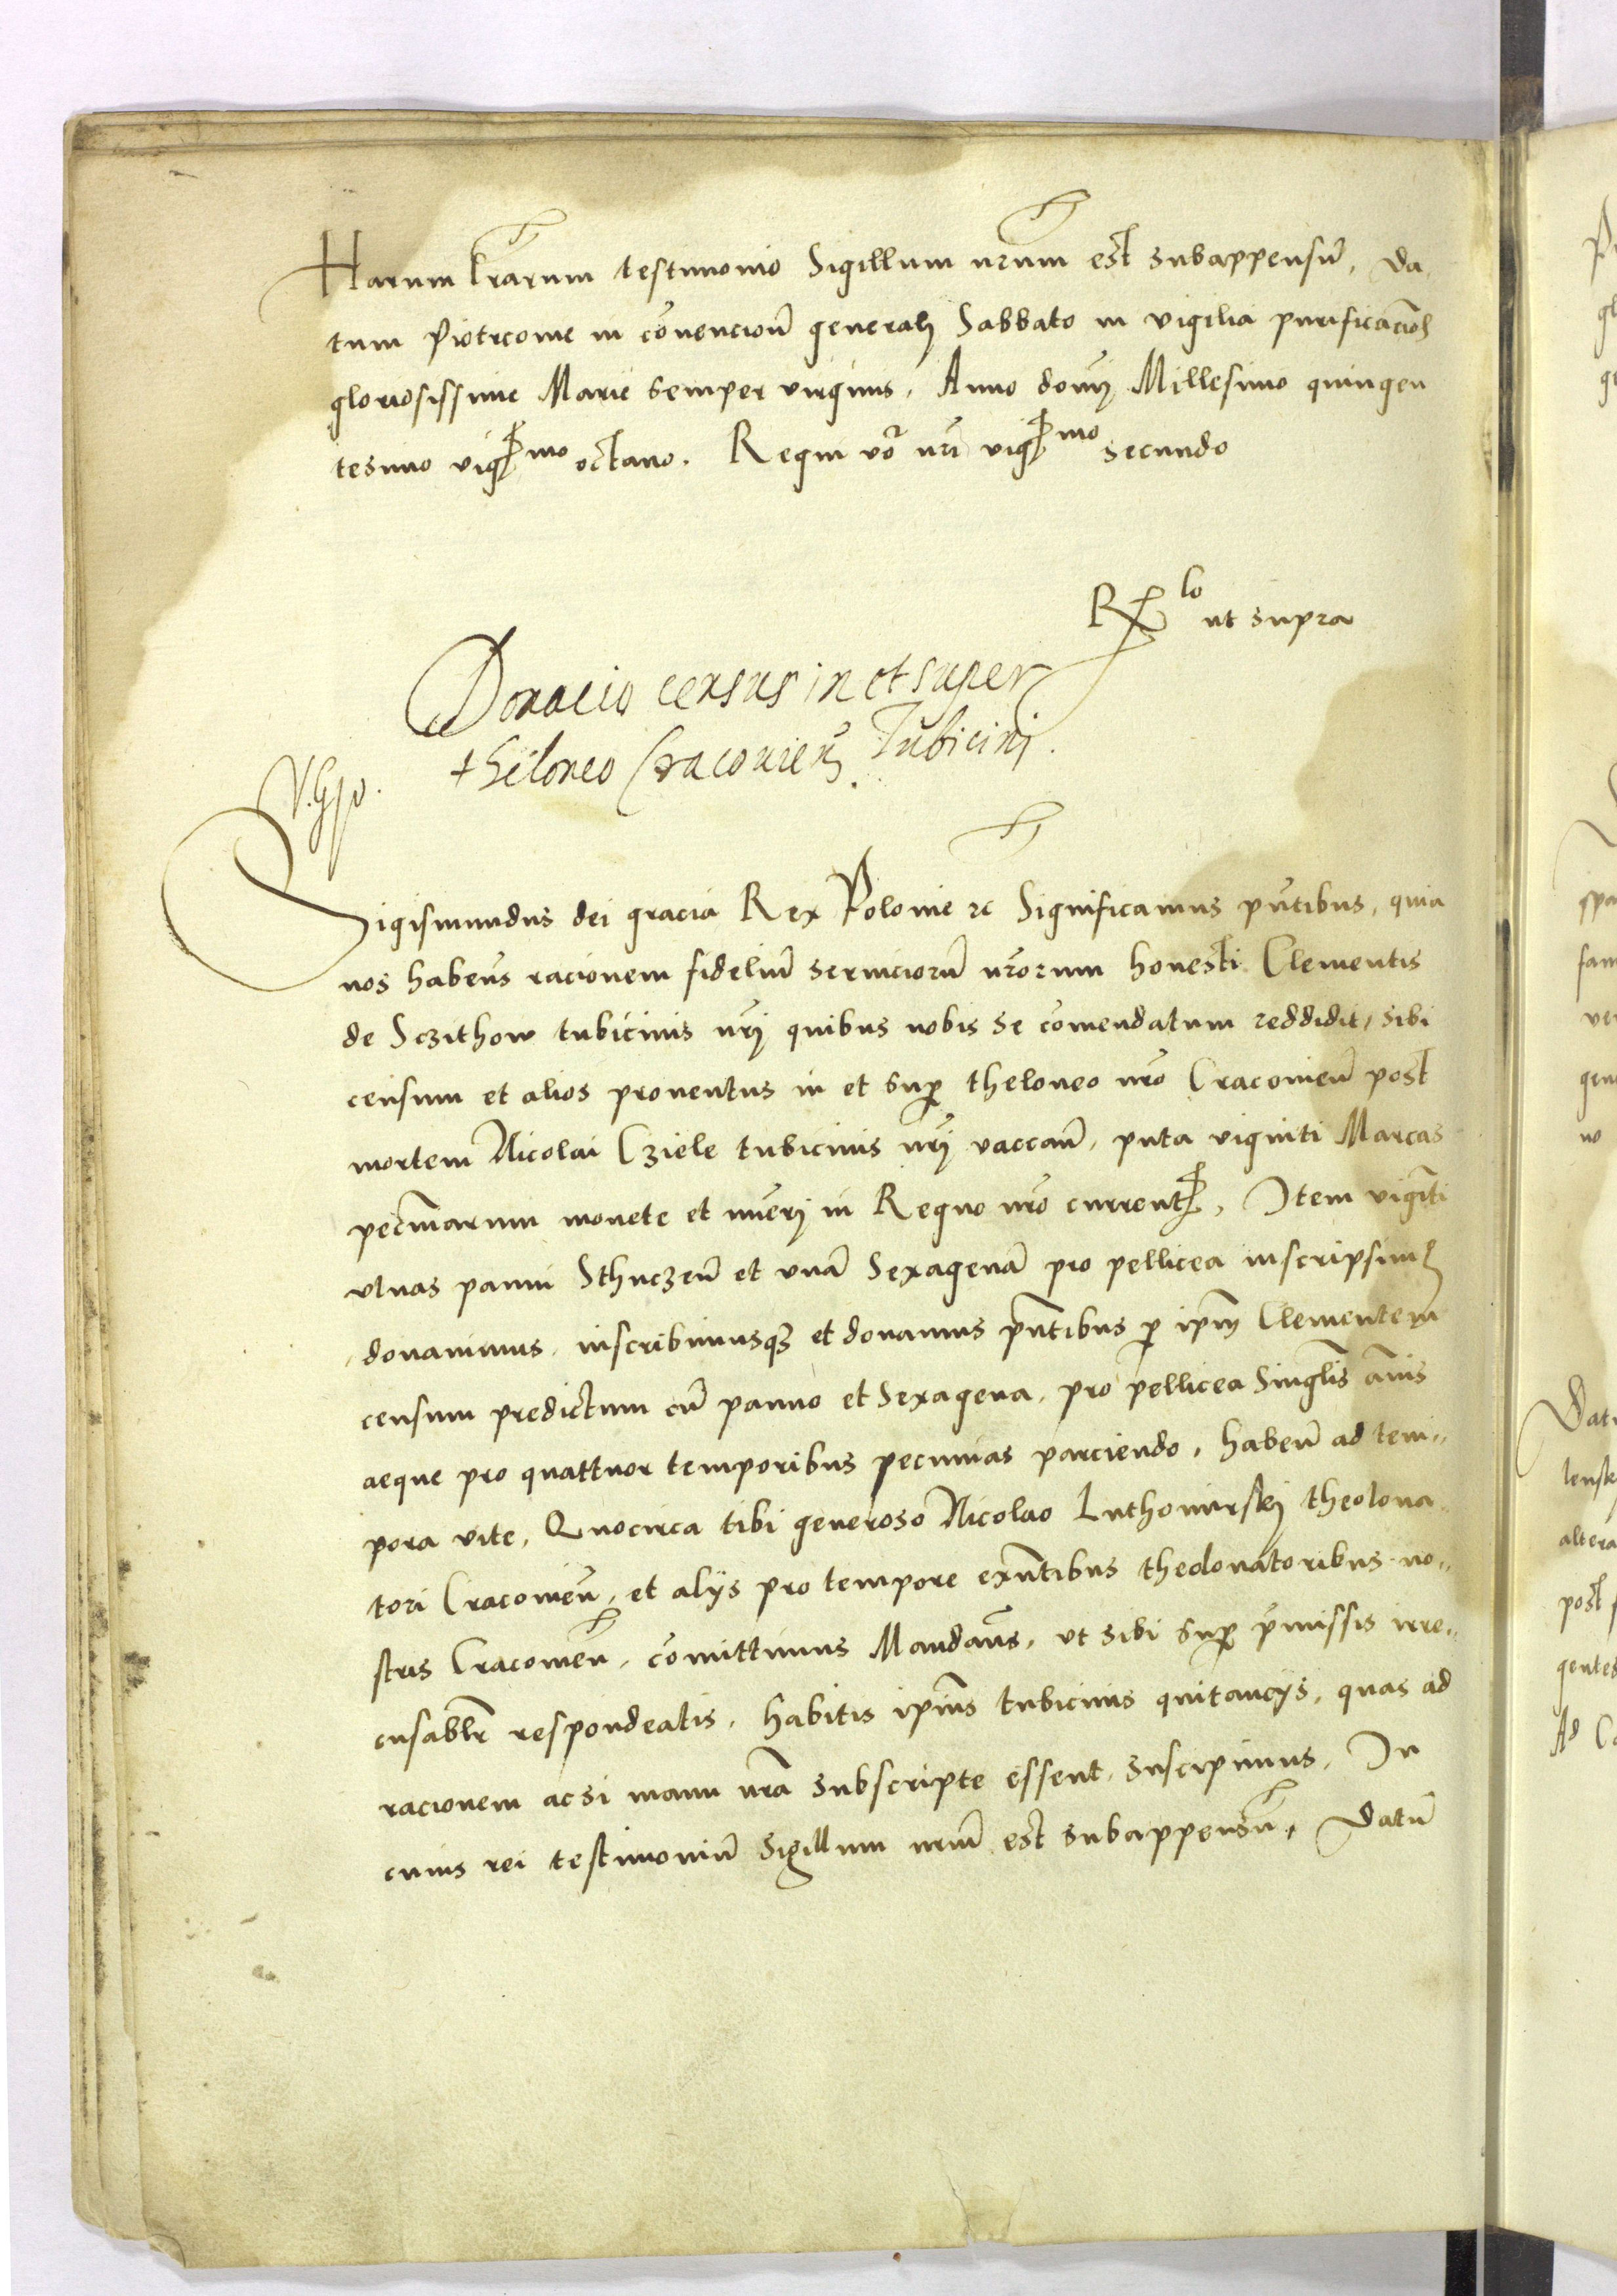 Harum lrarum testimonio Sigillum nrum est subappensũ, Da
tum Piotrcovie in cõvencioñ generali Sabbato in vigilia purificaciõs
gloriosissime Marie semper virginis, Anno domĩ Millesimo quingen
tesimo vigmo octavo. Regni vo nri vigmo secundo
Rlo ut supra
Donacio census in et super
theloneo Cracovieñ Tubicini.
Sigismundus dei gracia Rex Polonie ꝛc Significamus pñtibus, quia
nos habeñs racionem fideliũ serviciorũ nrorum honesti Clementis
de Sczithow tubicinis nri quibus nobis se cõmendatum reddidit, sibi
censum et alios proventus in et sup theloneo nro Cracovieñ post
mortem Nicolai Cziele tubicinis nri vaccañ, puta viginti Marcas
pecuniarum monete et nũeri in Regno nro current, Item viginti
ulnas panni Sthuczeñ et unã Sexagenã pro pellicea inscripsim9
donavimus, inscribimusqꝫ et donamus pñtibus p ipm Clementem
censum predictum cũ panno et Sexagena, pro pellicea Singlis ãnis
aeque pro quattuor temporibus pecunias parciendo, habeñ ad tem„
pora vite, Quocirca tibi generoso Nicolao Luthomirskj theolona
tori Cracovieñ, et alijs pro tempore exñtibus theolonatoribus no„
stris Cracovieñ, cõmittimus Mandañs, ut sibi sup pmissis irre„
cusablr respondeatis, habitis ipius tubicinis quitancijs, quas ad
racionem ac si manu nra subscripte essent, suscipimus, In
cuius rei testimoniũ Sigillum nrum est subappensũ, Datũ